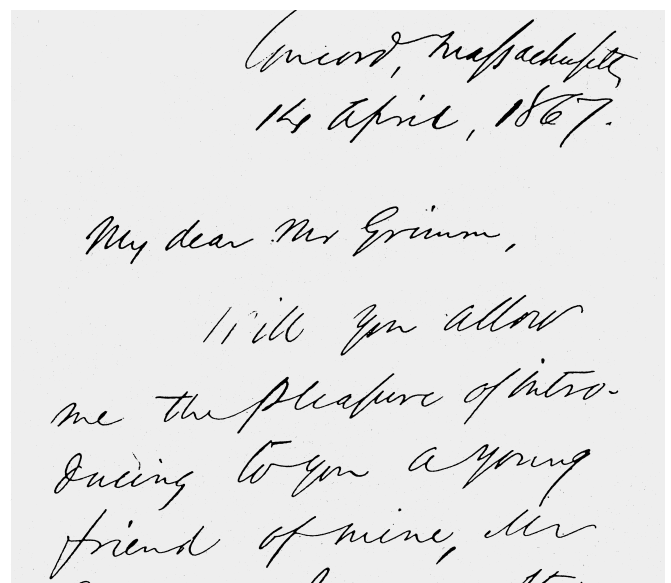 Concord, Massachusetts
14 April, 1867.
My dear Mr Grimm,
Will you allow
me the pleasure of intro-
ducing to you a young
friend of mine, Mr